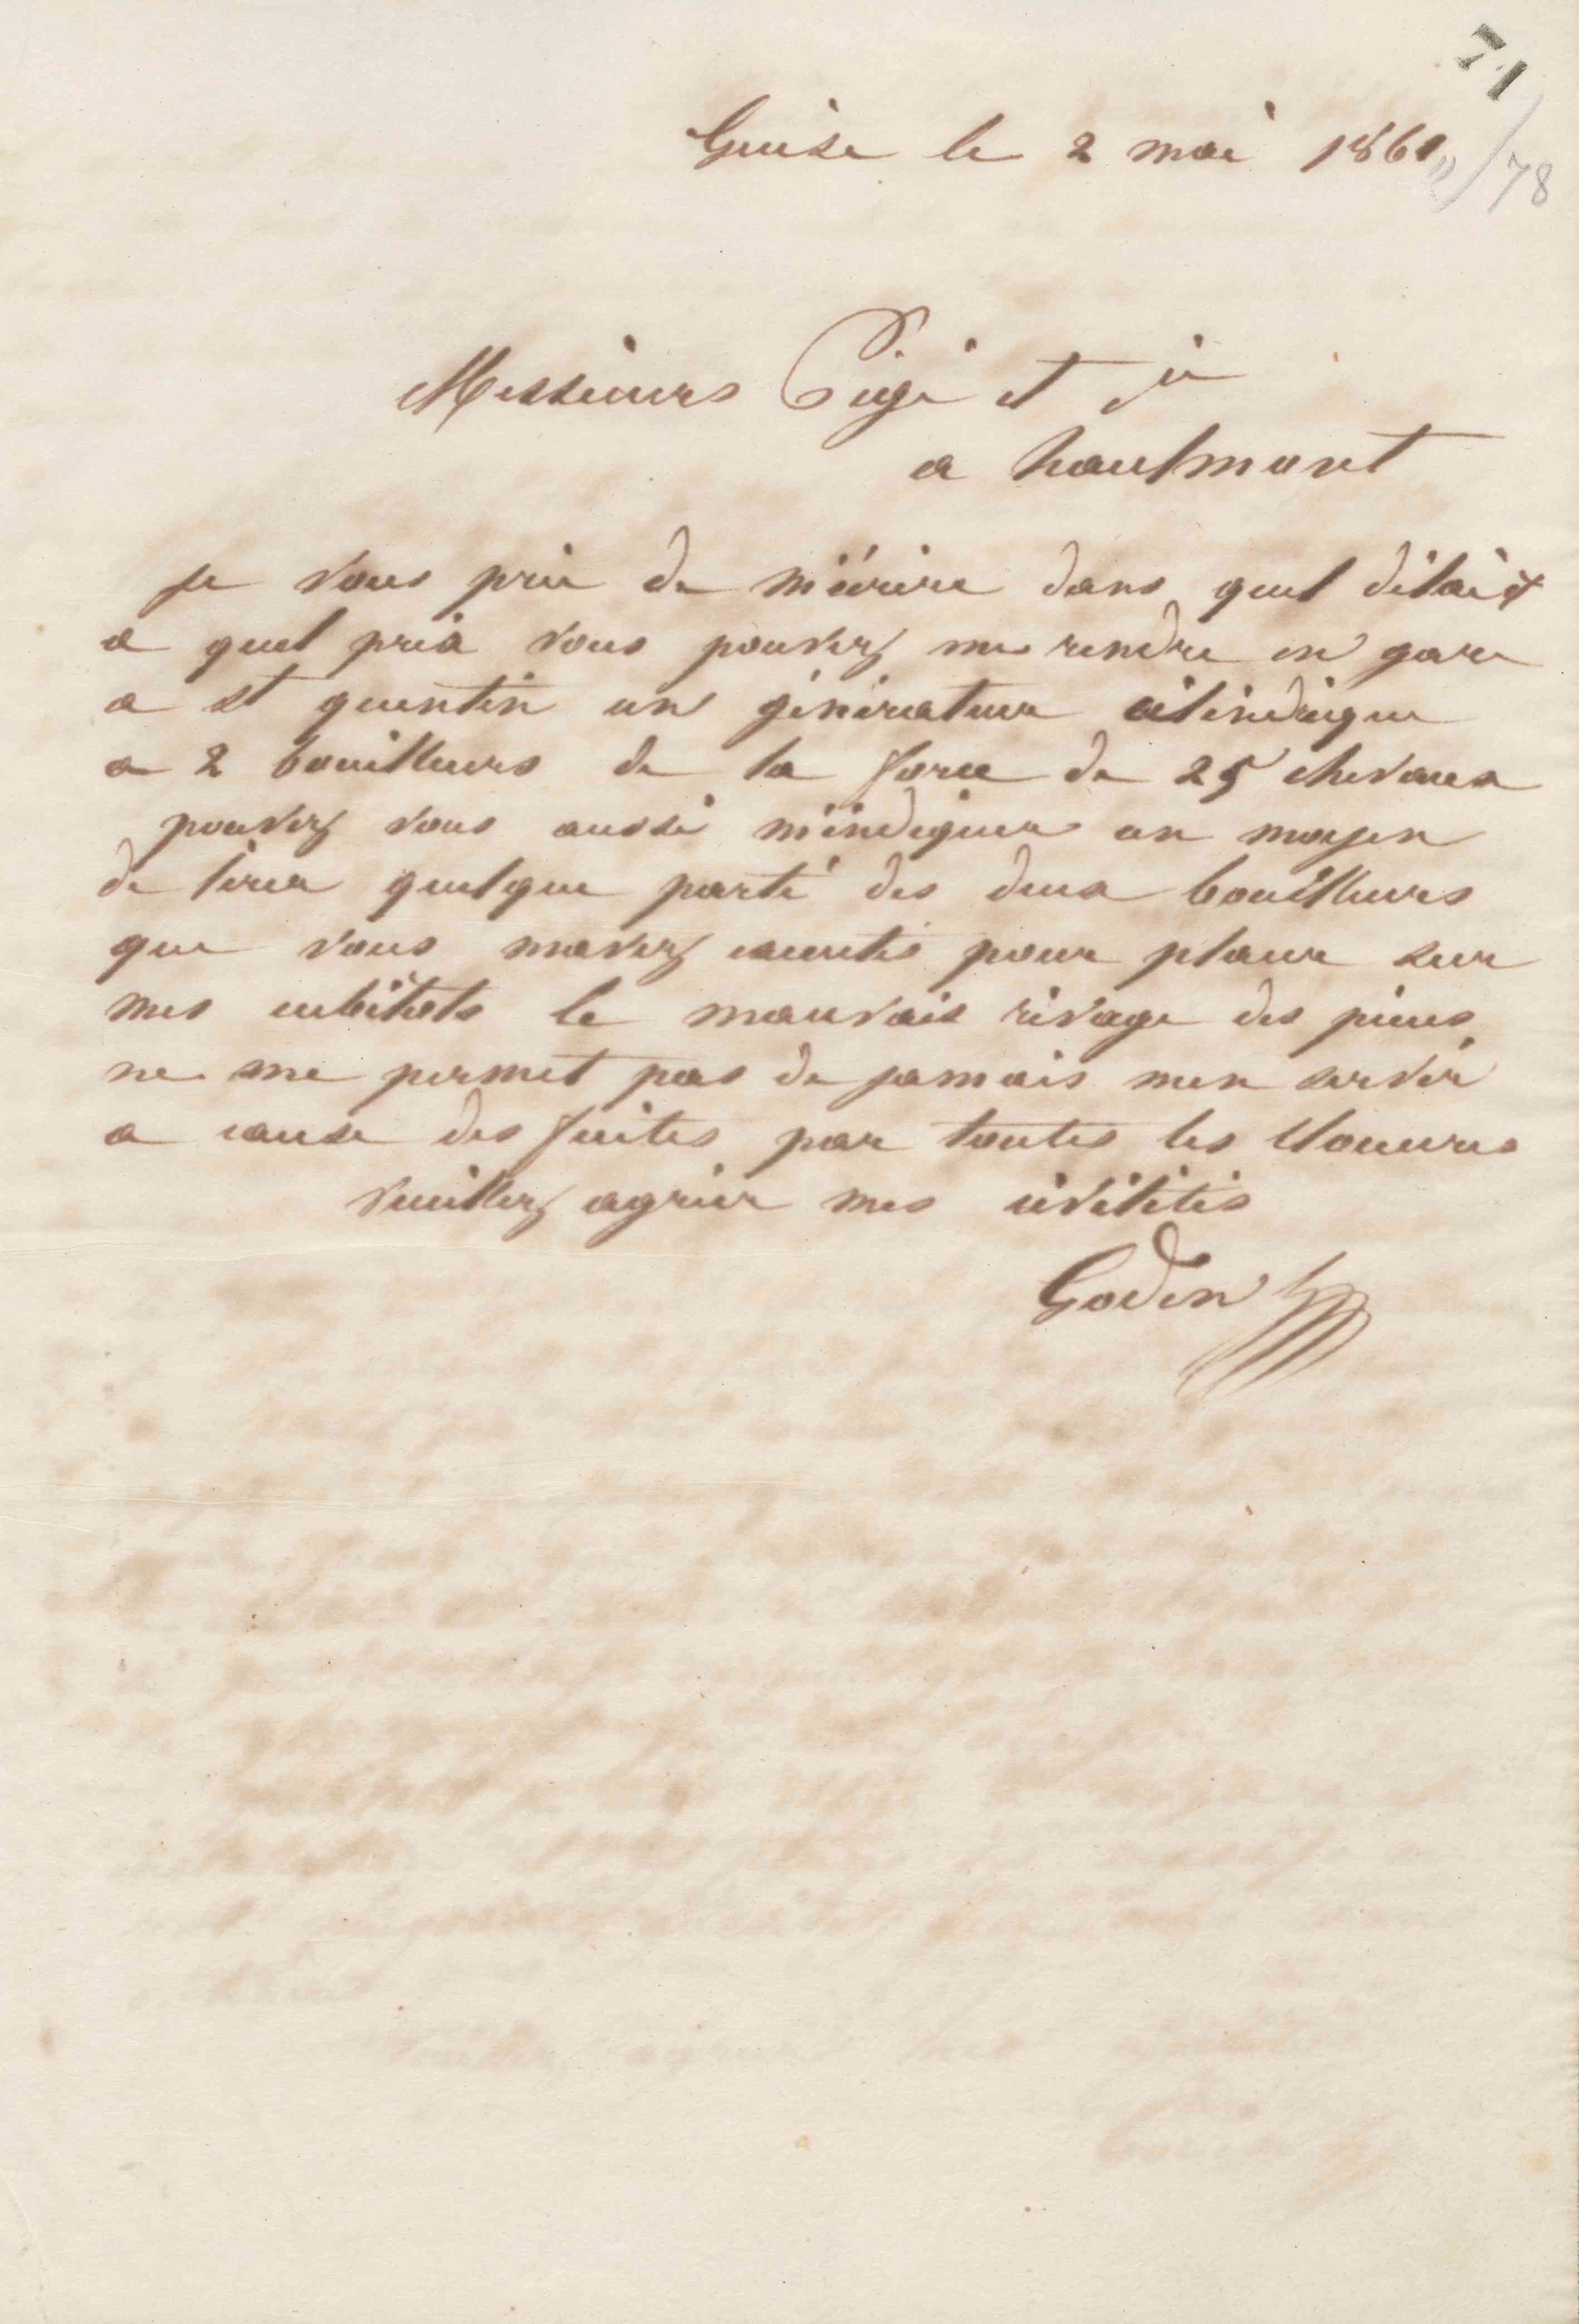 71
78
Guise le 2 mai 1861
Messieurs Pige et cie
a hautmont
je vous prie de m'écrire dans quel délai et
a quel prix vous pouvez me rendre en gare
a st quentin un générateur cilindrique
a 2 bouilleurs de la force de 25 chevaux
pouvez vous aussi m'indiquer un moyen
de tirer quelque parti des deux bouilleurs
que vous mavez pour placer sur
mes cubilots le mauvais rivage des pièces
ne me permet pas de jamais men servir
a cause des fuites par toutes les clouures
veuillez agréer mes civilités
Godin